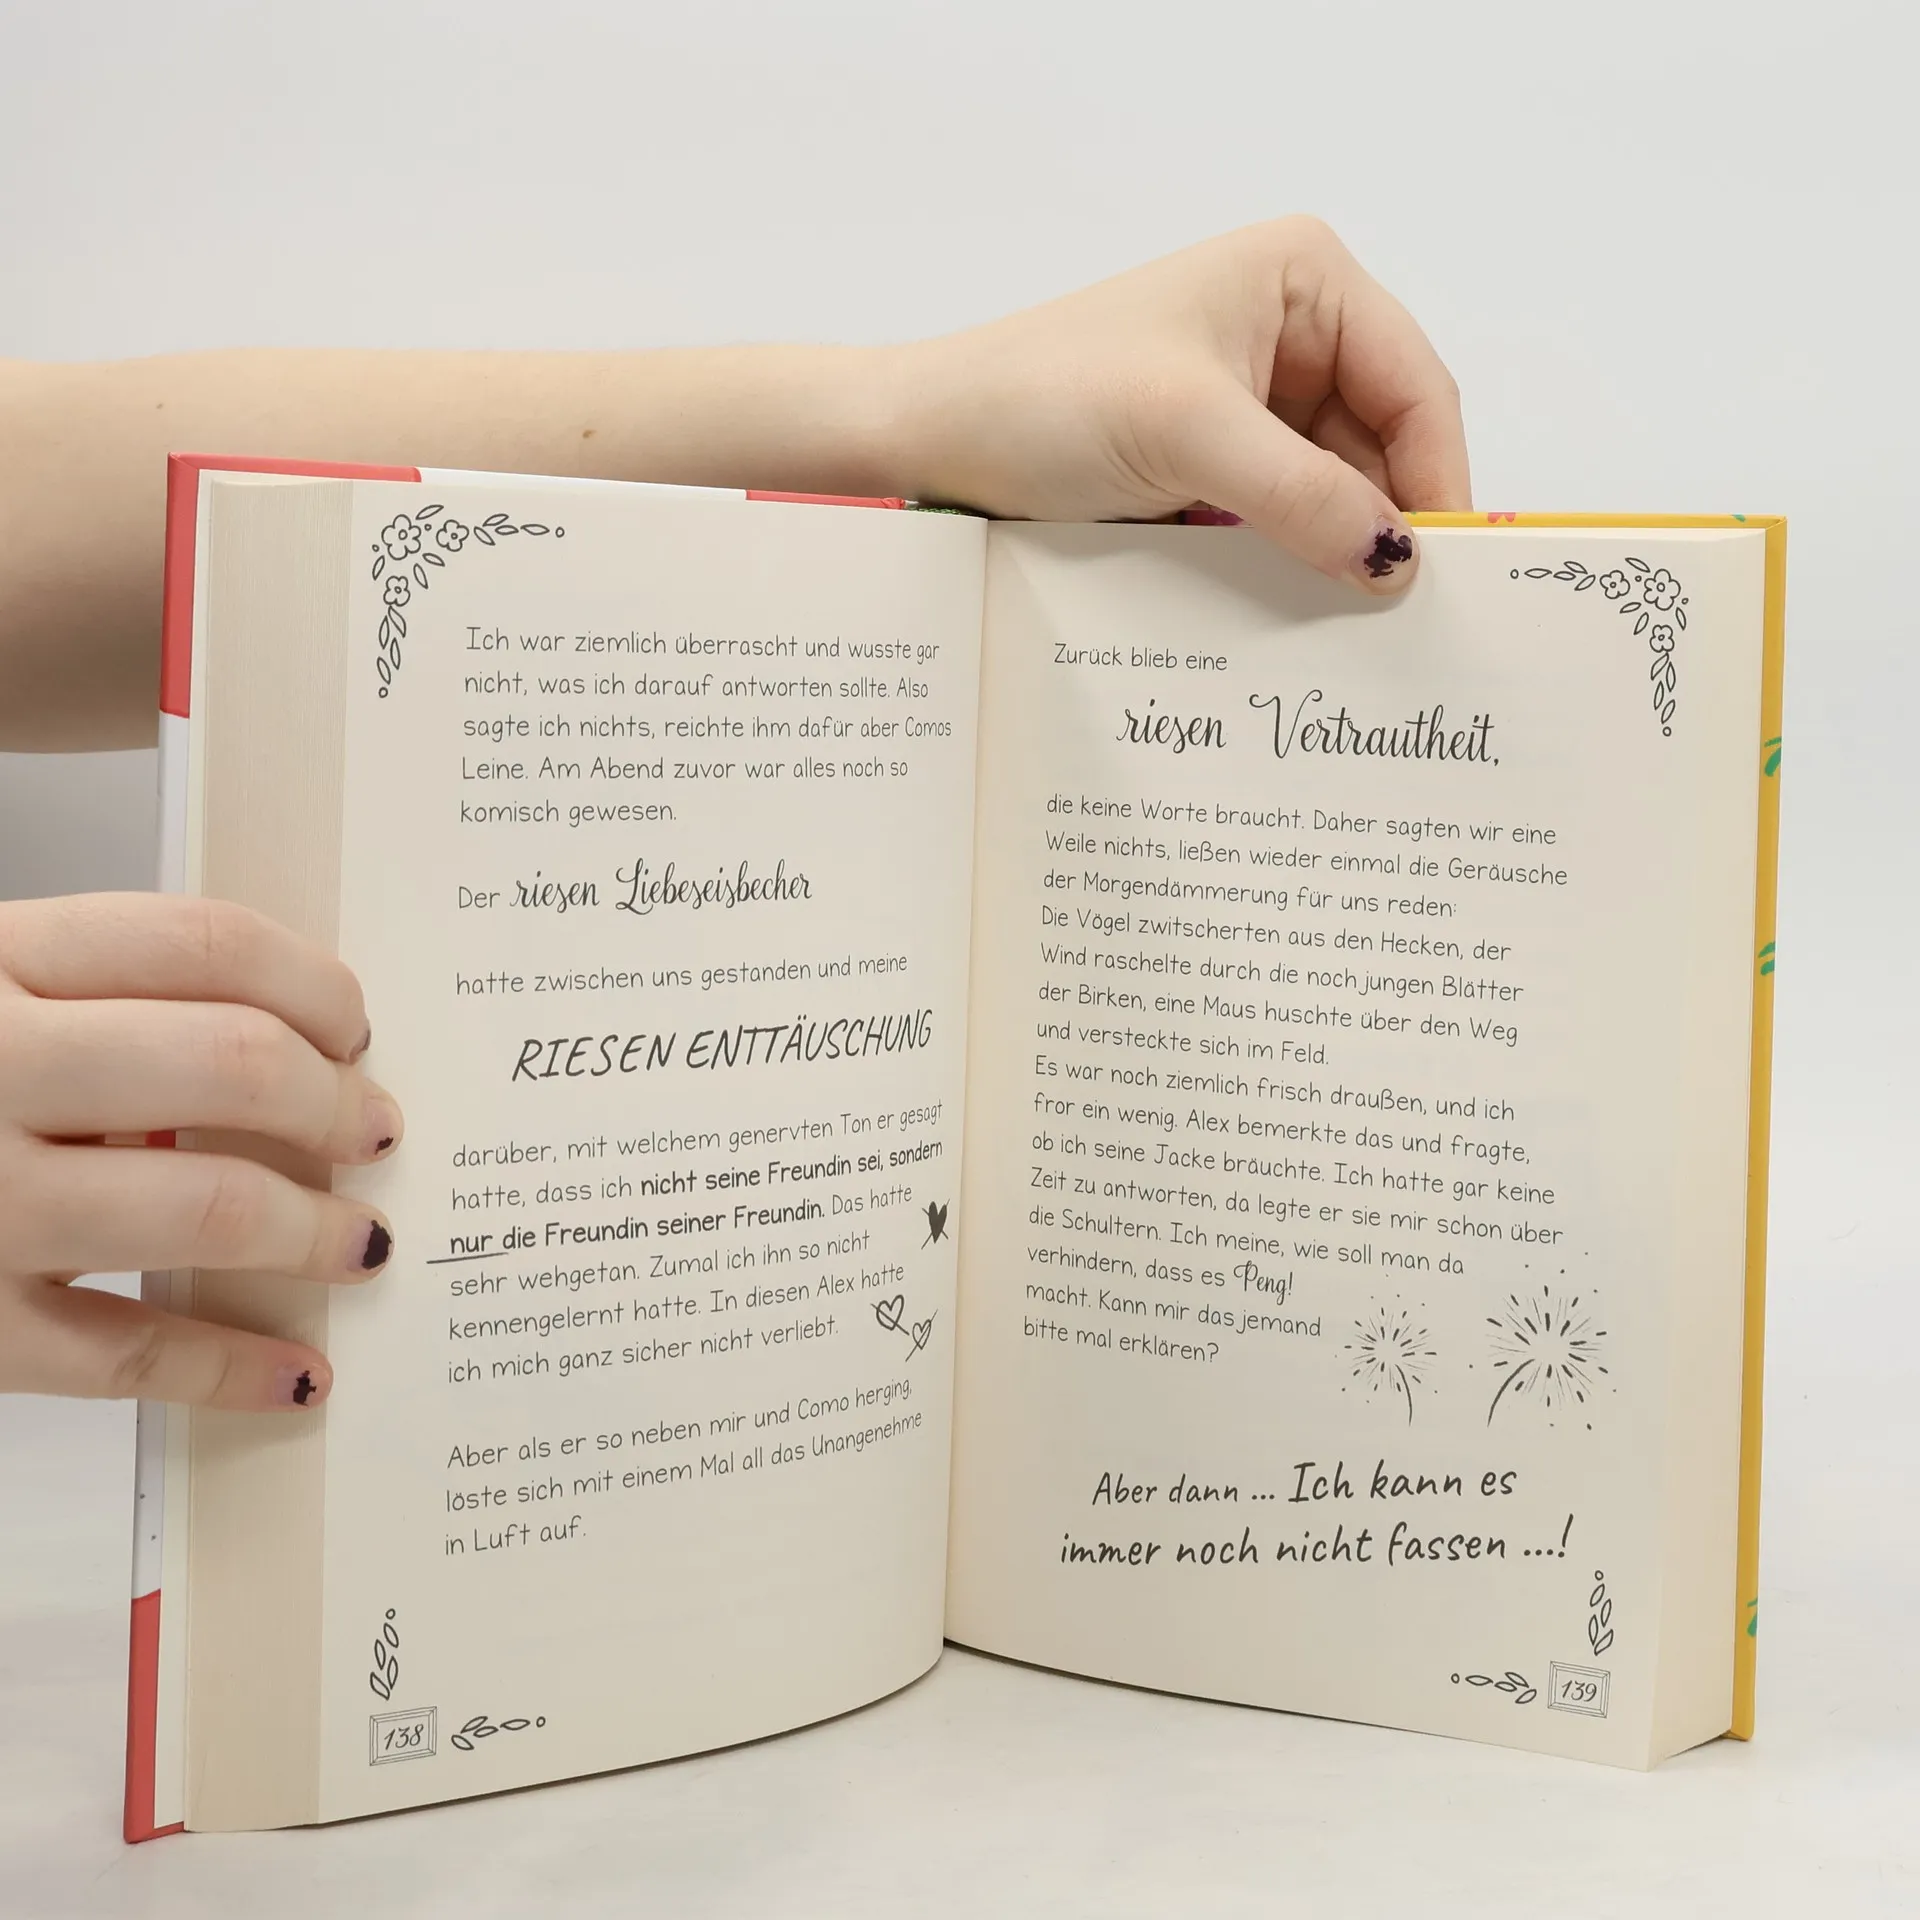 Ich war ziemlich überrascht und wusste gar
nicht, was ich darauf antworten sollte. Also
sagte ich nichts, reichte ihm dafür aber Comos
Leine. Am Abend zuvor war alles noch so
komisch gewesen.
Der riesen Liebeseisbecher
hatte zwischen uns gestanden und meine
RIESEN ENTTÄUSCHUNG
darüber, mit welchem genervten Ton er gesagt
hatte, dass ich nicht seine Freundin sei, sondern
nur die Freundin seiner Freundin. Das hatte
sehr wehgetan. Zumal ich ihn so nicht
kennengelernt hatte. In diesen Alex hatte
ich mich ganz sicher nicht verliebt.
Aber als er so neben mir und Como herging,
löste sich mit einem Mal all das Unangenehme
in Luft auf.
138
Zurück blieb eine
riesen Vertrautheit,
die keine Worte braucht. Daher sagten wir eine
Weile nichts, ließen wieder einmal die Geräusche
der Morgendämmerung für uns reden:
Die Vögel zwitscherten aus den Hecken, der
Wind raschelte durch die noch jungen Blätter
der Birken, eine Maus huschte über den Weg
und versteckte sich im Feld.
Es war noch ziemlich frisch draußen, und ich
fror ein wenig. Alex bemerkte das und fragte,
ob ich seine Jacke bräuchte. Ich hatte gar keine
Zeit zu antworten, da legte er sie mir schon über
die Schultern. Ich meine, wie soll man da
verhindern, dass es Peng!
macht. Kann mir das jemand
bitte mal erklären?
Aber dann ... Ich kann es
immer noch nicht fassen ...!
139